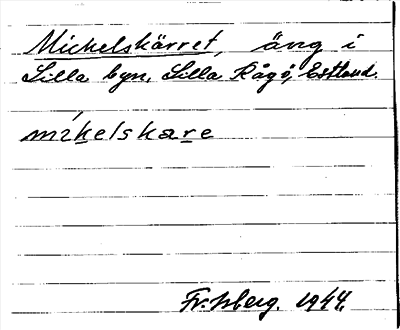 Mickelskärret, äng i
Lilla byn, Lilla Rågö, Estland.
míkelskare
Fr. Isberg. 1944.